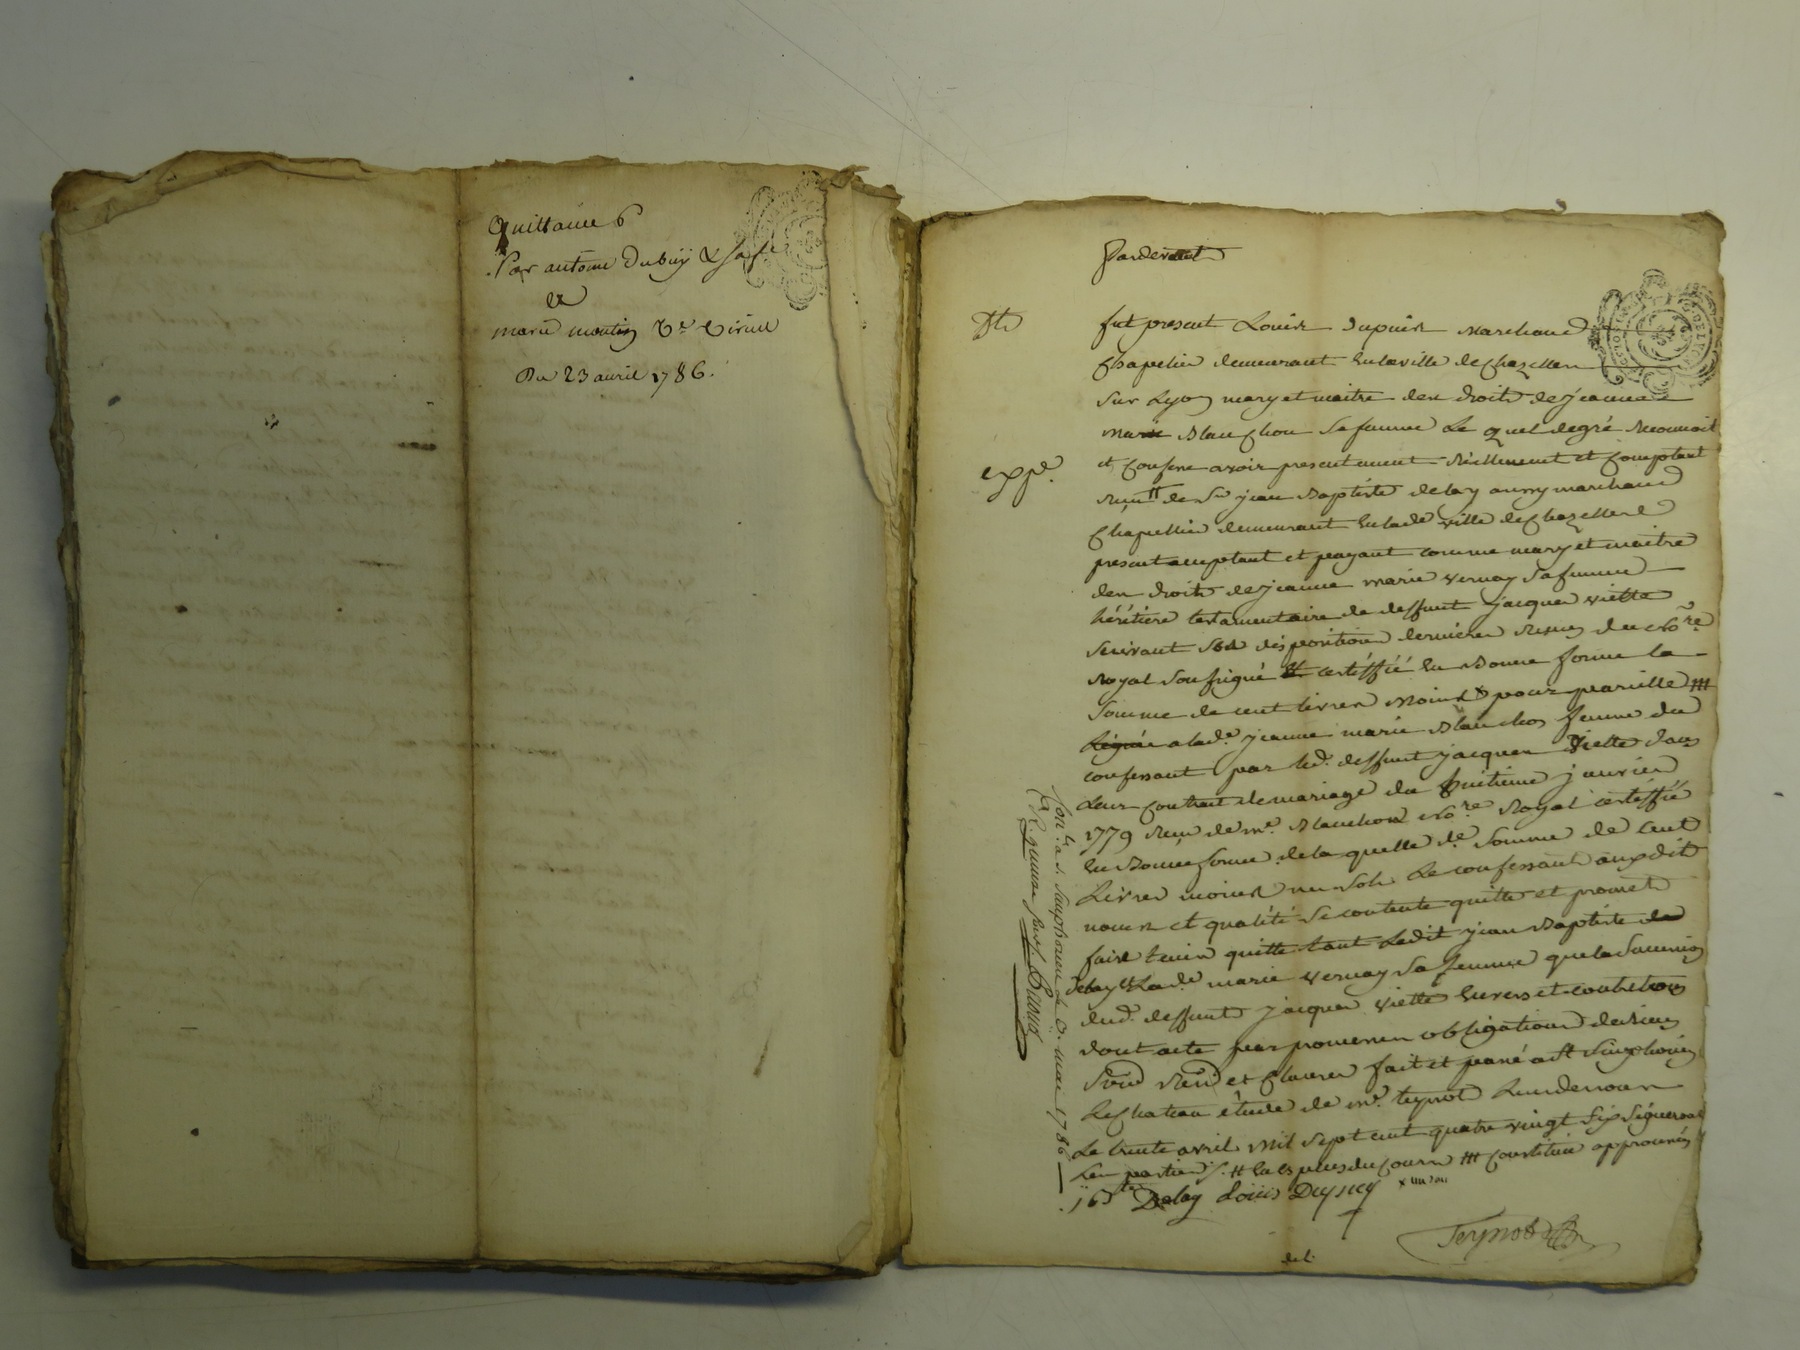 Quittance
Par antoine Dubuy & sa fe
a
marie montin Ve
Du 23 avril 1786.
Pardevant
fut present Louis Dupuis marchand
chapelier demeurant en la ville de chazelles
sur Lyon mary et maitre des droits de jeanne
marie Blanchon sa femme Le quel de gré reconnoit
et confesse avoir presentement réellement et comptant
reçu # de Sr jean Baptiste delay aussy marchand
chapellier demeurant en lade ville de chazelles
present acceptant et payant comme mary et maitre
des droits de jeanne marie vernay sa femme
héritiere testamentaire de deffunt jacques viette
suivant ses disposition dernieres reçues du nore
Royal soussigné certiffié en bonne forme la
somme de cent livres moins x pour pareille ###
a lade jeanne marie Blanchon femme du
confessant par led. deffunt jacques viette dans
Leur contrat de mariage du huitieme janvier
1779 reçu de me Blanchon nore Royal certiffié
en Bonne forme de la quelle de somme de cent
Livres moins un sols Le confessant auxdit
noms et qualité se contente quitte et promet
faire tenir quitte tant Ledit jean Baptiste
delay & Lade marie vernay sa femme que la succession
dud. deffunt jacques viette envers et contre tous
dont acte par promesses obligations de biens
et clauses fait et passé a St Simphorien
Le chateau étude de me teynot L'un de nous
Le trente avril mil sept cent quatre vingt six signerons
Les parties # en especes du cours ### constitué approuvés
x un sou
jb Delay Louis Dupuy
Teynot
exp.
Con.le a S. Simphorien Le mai 1786